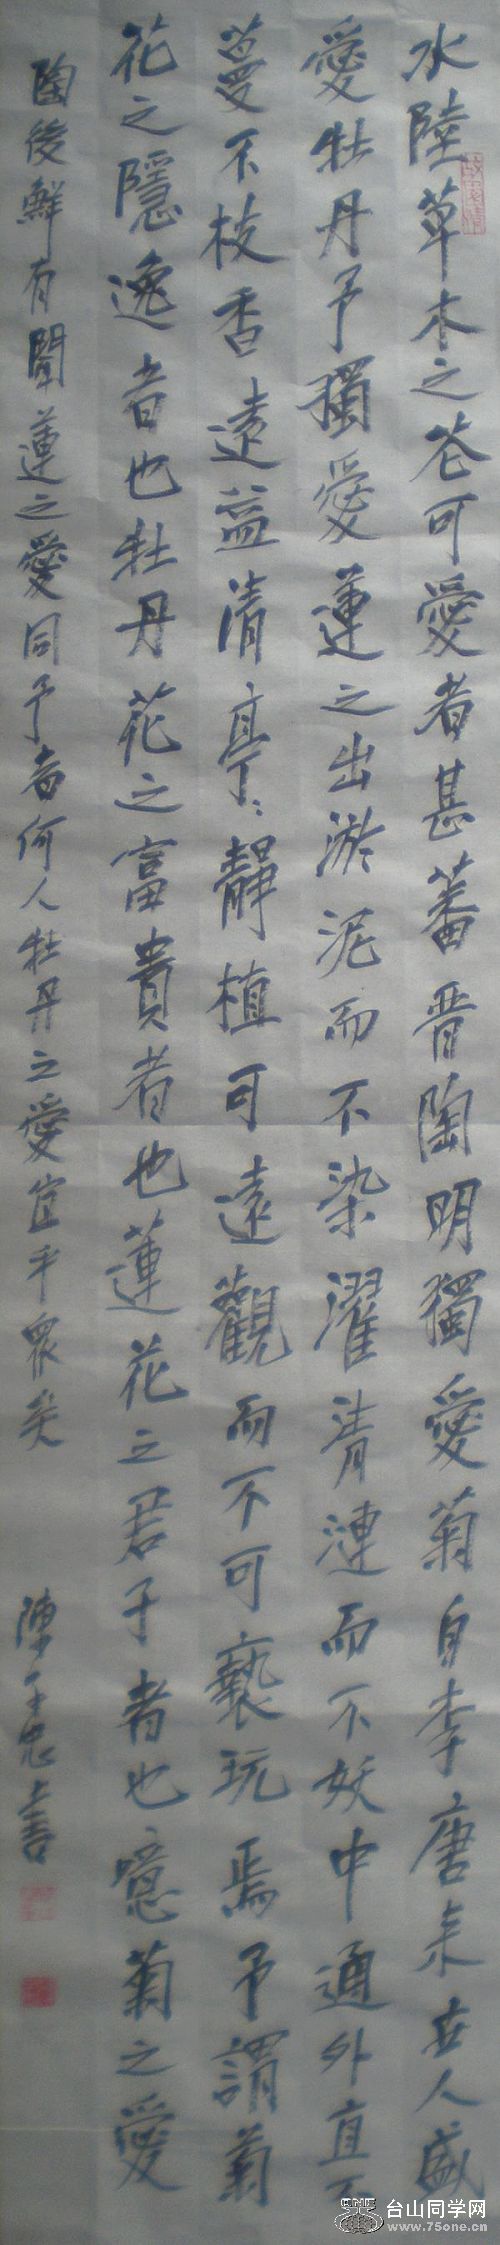 水陸草木之花可愛者甚蕃晋陶明獨愛菊自李唐来世人盛
愛牡丹予獨愛蓮之出淤泥而不染濯清漣而不妖中通外直不
蔓不枝香遠益清亭〻靜植可遠觀而不可褻玩焉予謂菊
花之隱逸者也牡丹花之富貴者也蓮花之君子者也噫菊之愛
陶後鮮有聞蓮之愛同予者何人牡丹之愛宜乎衆矣
陳 忠書
台山同学网
www.75one.cn